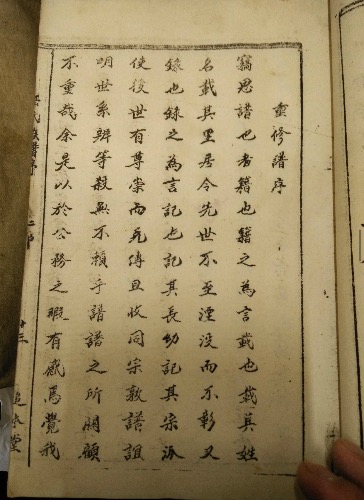 重修谱序
竊思譜也者籍也籍之為言載也載其姓
名載其里居令先世不至湮没而不彰又
錄也錄之為言記也記其長幼記其宗派
使後世有尊崇而无傳且收同宗敦譜誼
明世系辨等殺無不賴乎譜譜之所關顧
不重哉余是以於公務之暇有感焉覺我
氏族譜序
追本堂